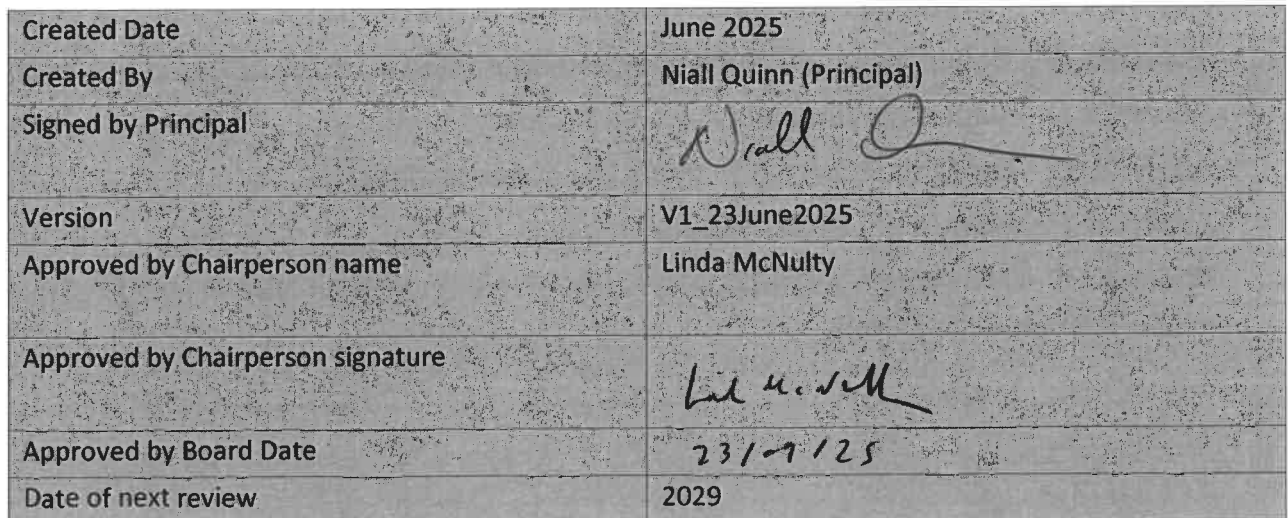 Created Date June 2025
Created By Niall Quinn (Principal)
Signed by Principal Niall Q
Version V1_23June2025
Approved by Chairperson name Linda McNulty
Approved by Chairperson signature
Approved by Board Date
Date of next review 2029